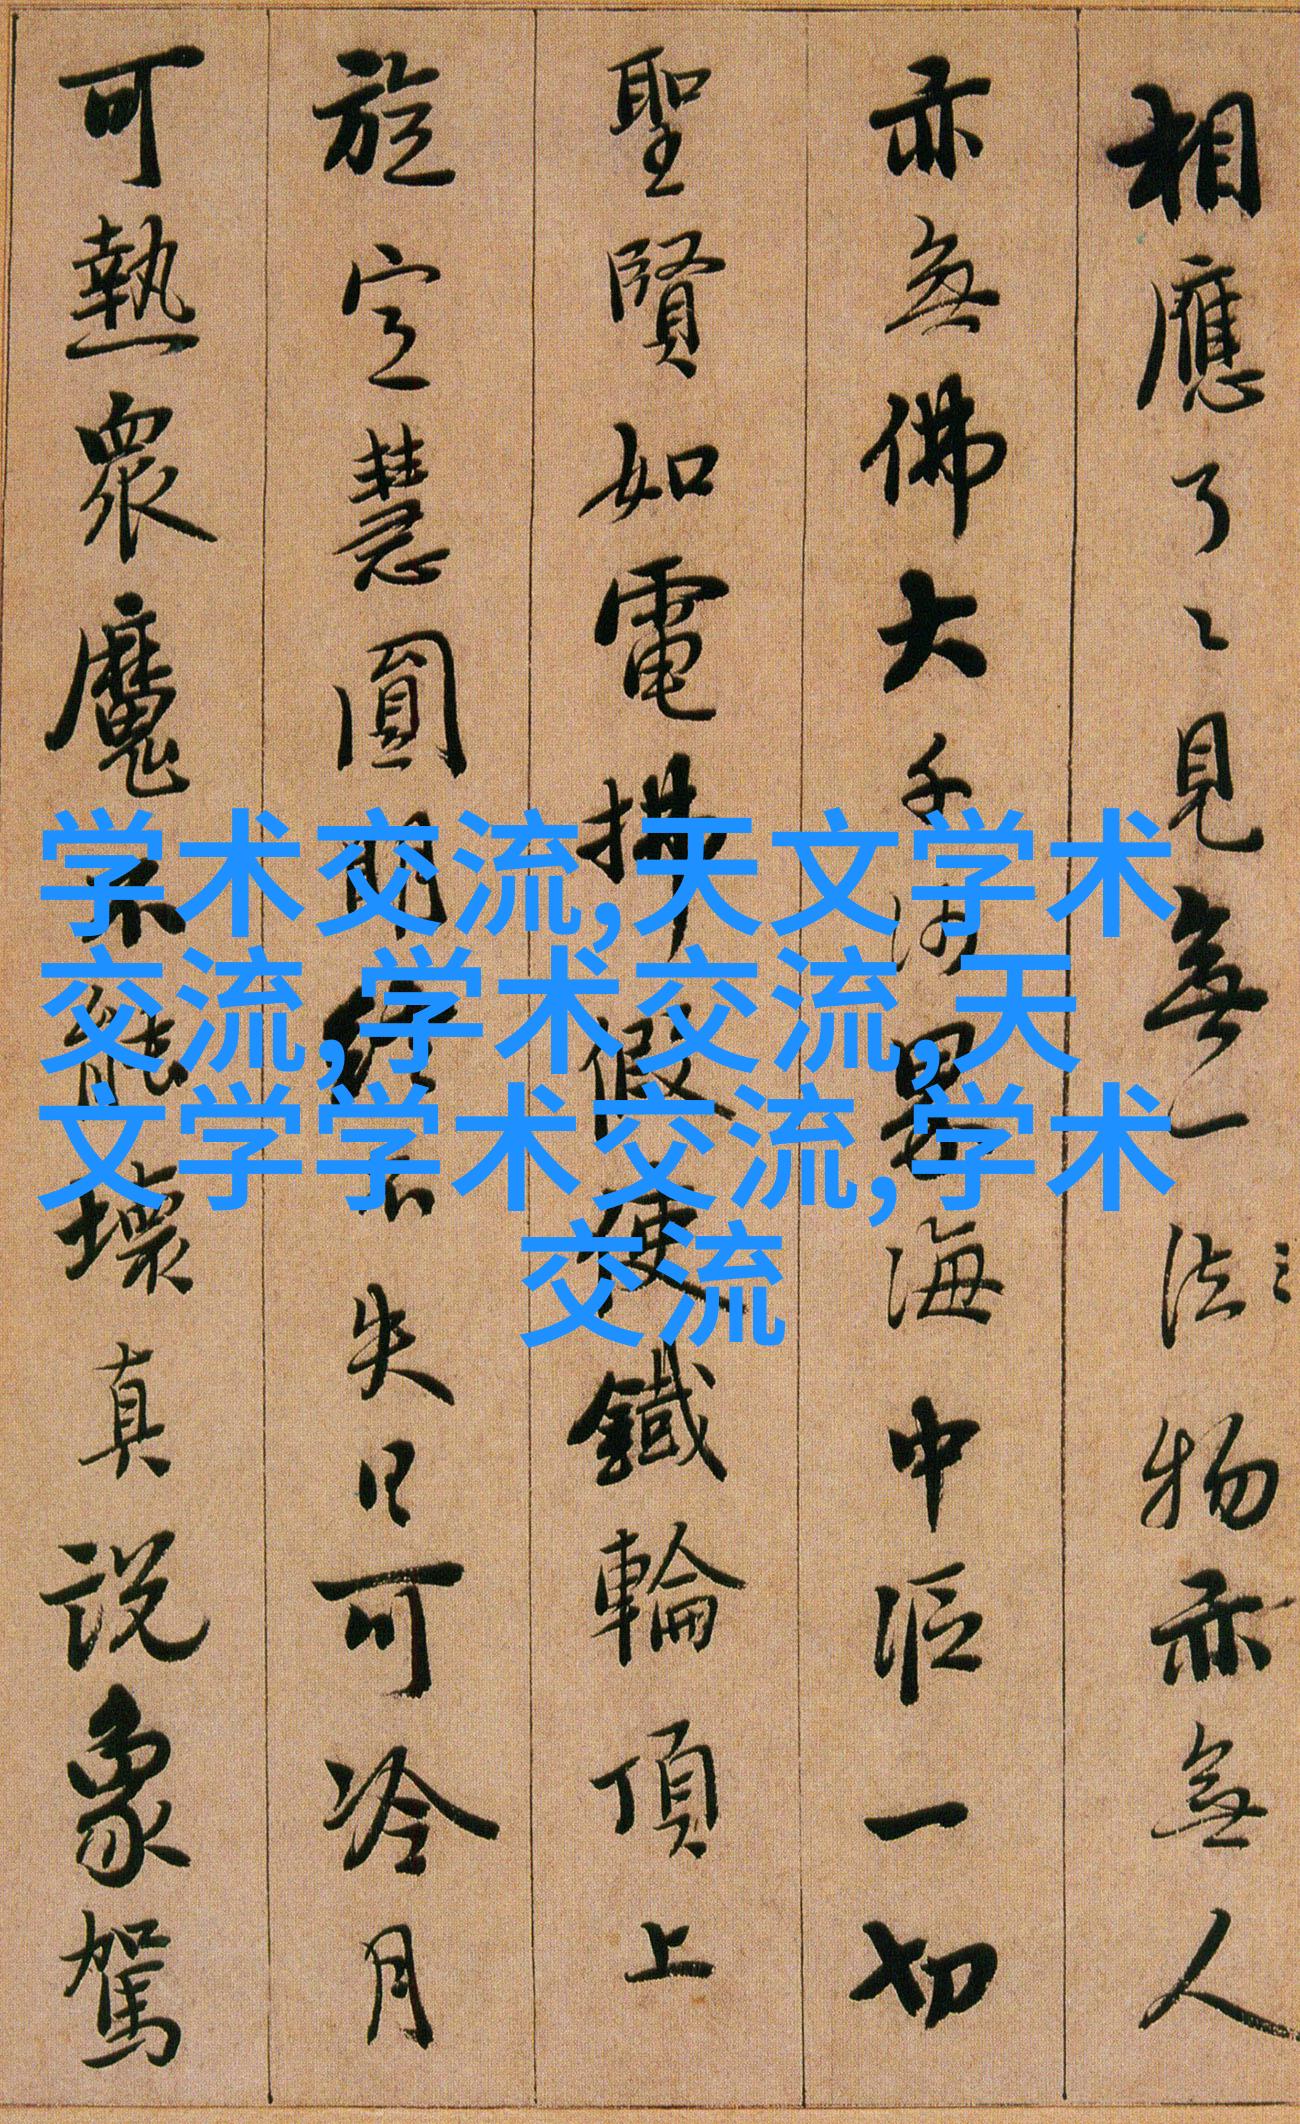 相應了〻見無一法物亦無人
亦無佛大千沙界海中漚一切
聖賢如電拂假使鐵輪頂上
旋定慧圓明終不失日可冷月
可熱眾魔不能壞真説象駕
学术交流,天文学术
交流,学术交流,天
文学学术交流,学术
交流